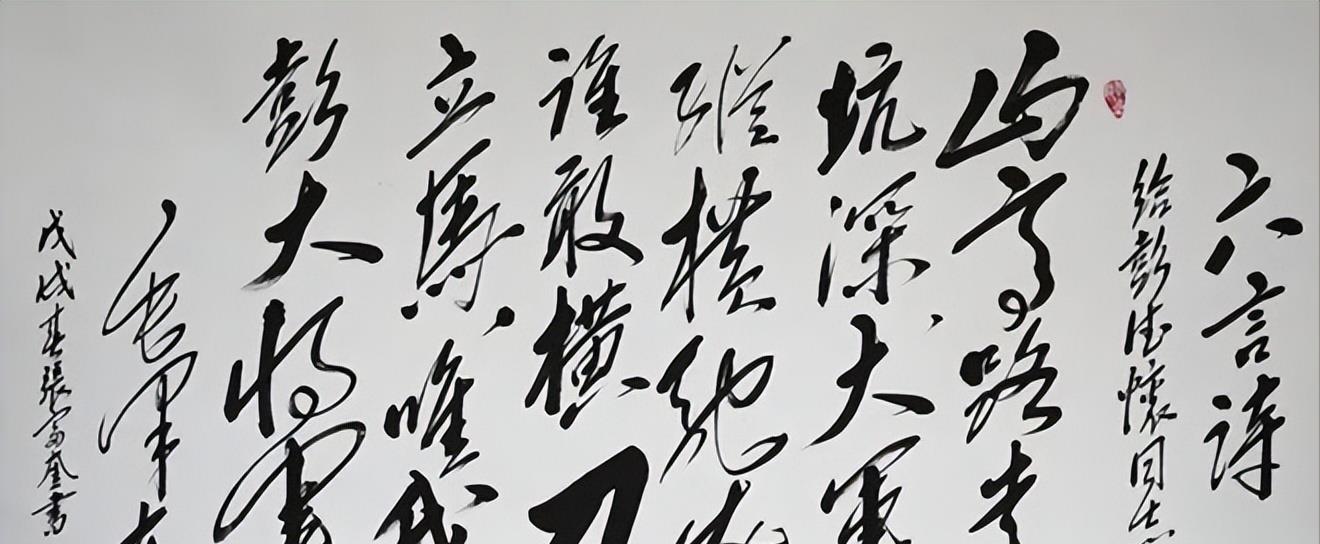 六言诗
给彭德怀同志
山高路远
坑深大军
纵横驰
谁敢横刀
立马唯我
彭大将军
毛泽东
戊戌春張富奎書